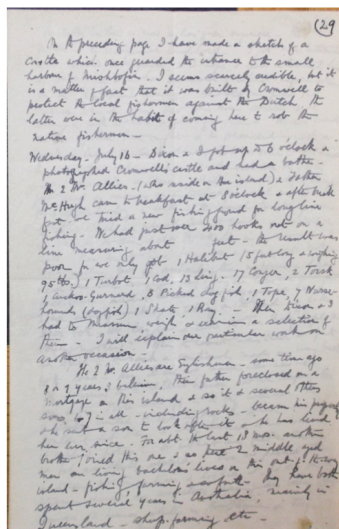 (29
On the preceding page I have made a sketch of a
Castle which once guarded the entrance to the small
harbour of Inishbofin. I seems scarcely credible, but it
is a matter of fact that it was built by Cromwell to
protect the local fishermen against the Dutch, the
latter were in the habit of coming here to rob the
native fishermen —
Wednesday – July 16 – Dixon & I got up to 6 o'clock &
photographed Cromwell's castle and had a bathe –
The 2 Mr. Allies – (who reside on the island) & Father
McHugh came to breakfast at 8 o'clock & after break
fast we tried a new fishing ground for long line
fishing – We had just over 200 hooks out on a
line measuring about feet – the result was
poor for we only got 1 Halibut (5 feet long & weighing
95 lbs) 1 Turbot, 1 Cod, 13 Ling – 17 Conger, 2 Torsk
1 Gurnard, 3 Picked dog fish, 1 Tope, 7 Nurse
hounds (dogfish) 1 Skate, 1 Ray. – Then Dixon & I
had to measure, weigh & examine a selection of
them – I will explain our particular work on
another occasion –
The 2 Mr. Allies are Englishmen – some time ago
9 years I believe, their father foreclosed on a
mortgage on this island & so it & several others
in all – including rocks – became his property
a son to look after it & he has lived
here ever since. For abt the last 18 mos. another
brother joined this one & so 2 middle aged
men are living bachelors lives on this out of the way
island – fishing farming & so forth. They have both
spent several years in Australia, mainly in
Queensland – sheep farming etc